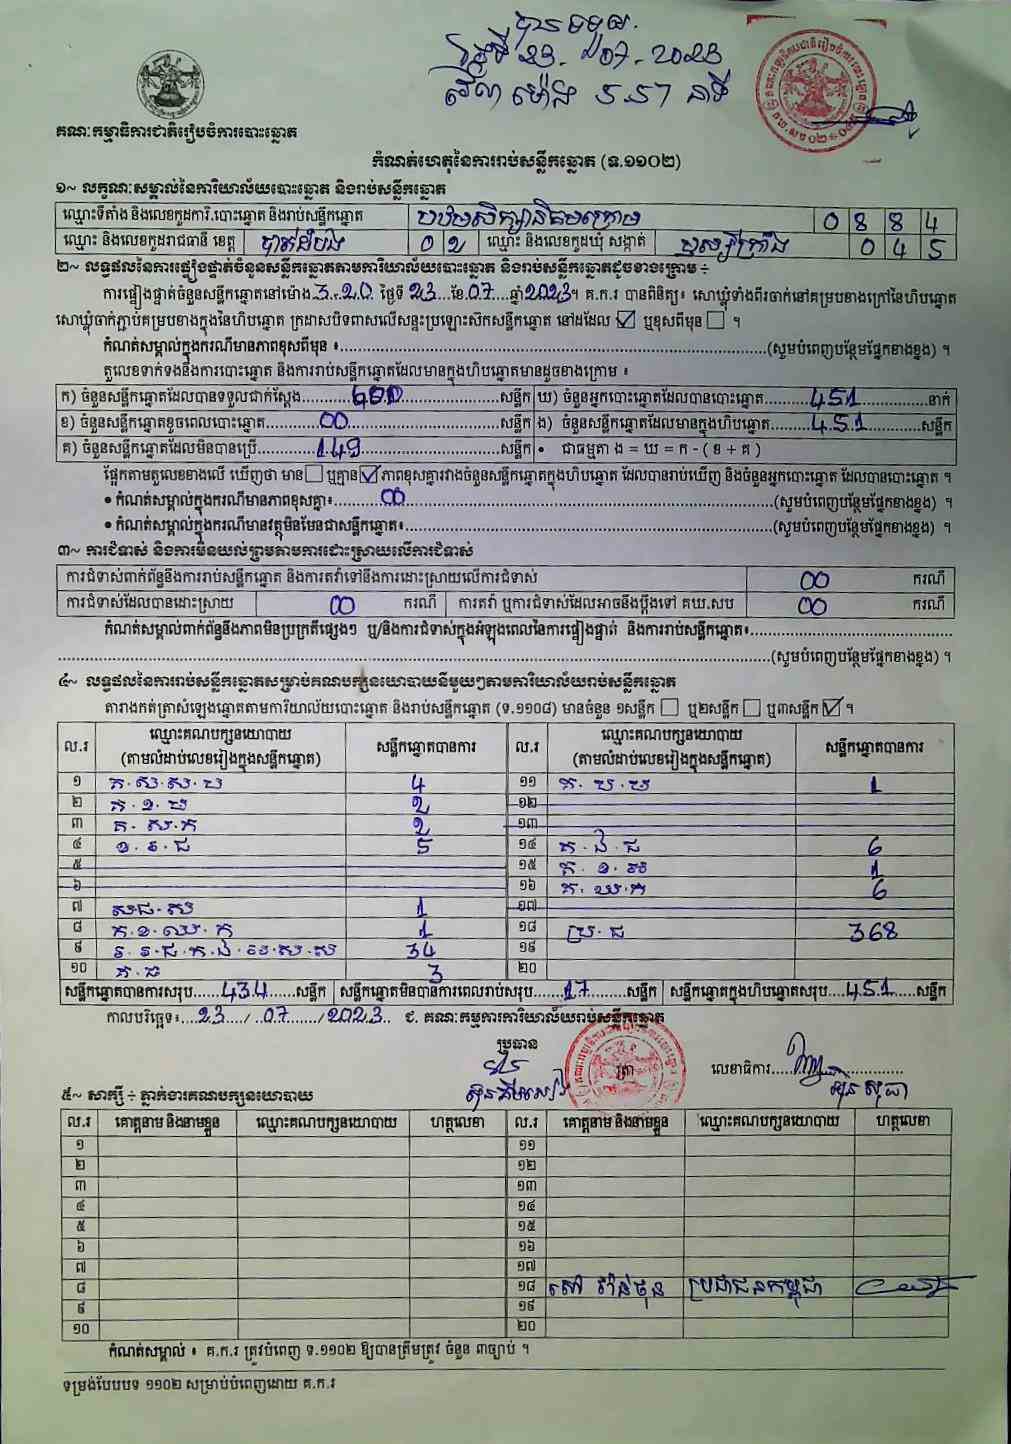 បានទទួល
ថ្ងៃទី 23. 07. 2023
វេលា ម៉ោង 5.57 នាទី
គណៈកម្មាធិការជាតិរៀបចំការបោះឆ្នោត
កំណត់ហេតុនៃការរាប់សន្លឹកឆ្នោត (ទ.១១០២)
១~ លក្ខណៈសម្គាល់នៃការិយាល័យបោះឆ្នោត និងរាប់សន្លឹកឆ្នោត
ឈ្មោះទីតាំង និងលេខកូដការិ.បោះឆ្នោត និងរាប់សន្លឹកឆ្នោត បឋមសិក្សានិគមក្រោម 0 8 8 4
ឈ្មោះ និងលេខកូដរាជធានី ខេត្ត បាត់ដំបង 0 2 ឈ្មោះ និងលេខកូដឃុំ សង្កាត់ 0 4 5
២~ លទ្ធផលនៃការផ្ទៀងផ្ទាត់ចំនួនសន្លឹកឆ្នោតតាមការិយាល័យបោះឆ្នោត និងរាប់សន្លឹកឆ្នោតដូចខាងក្រោម ÷
ការផ្ទៀងផ្ទាត់ចំនួនសន្លឹកឆ្នោតនៅម៉ោង 3.20 ថ្ងៃទី 23 ខែ 07 ឆ្នាំ 2023។ គ.ក.រ បានពិនិត្យ៖ សោឃ្លុំទាំងពីរចាក់នៅគម្របខាងក្រៅនៃហិបឆ្នោត
សោឃ្លុំចាក់ភ្ជាប់គម្របខាងក្នុងនៃហិបឆ្នោត ក្រដាសបិទពាសលើសន្ទះប្រឡោះសិកសន្លឹកឆ្នោត នៅដដែល ☑ ឬខុសពីមុន ☐ ។
កំណត់សម្គាល់ក្នុងករណីមានភាពខុសពីមុន ៖ (សូមបំពេញបន្ថែមផ្នែកខាងខ្នង) ។
តួលេខទាក់ទងនឹងការបោះឆ្នោត និងការរាប់សន្លឹកឆ្នោតដែលមានក្នុងហិបឆ្នោតមានដូចខាងក្រោម ៖
ក) ចំនួនសន្លឹកឆ្នោតដែលបានទទួលជាក់ស្តែង 600 សន្លឹក ឃ) ចំនួនអ្នកបោះឆ្នោតដែលបានបោះឆ្នោត 451 នាក់
ខ) ចំនួនសន្លឹកឆ្នោតខូចពេលបោះឆ្នោត 00 សន្លឹក ង) ចំនួនសន្លឹកឆ្នោតដែលមានក្នុងហិបឆ្នោត 451 សន្លឹក
គ) ចំនួនសន្លឹកឆ្នោតដែលមិនបានប្រើ 149 សន្លឹក • ជាធម្មតា ង = ឃ = ក - ( ខ + គ )
ផ្អែកតាមតួលេខខាងលើ ឃើញថា មាន ☐ ឬគ្មាន ☑ ភាពខុសគ្នារវាងចំនួនសន្លឹកឆ្នោតក្នុងហិបឆ្នោត ដែលបានរាប់ឃើញ និងចំនួនអ្នកបោះឆ្នោត ដែលបានបោះឆ្នោត ។
• កំណត់សម្គាល់ក្នុងករណីមានភាពខុសគ្នា៖ 00 (សូមបំពេញបន្ថែមផ្នែកខាងខ្នង) ។
• កំណត់សម្គាល់ក្នុងករណីមានវត្ថុមិនមែនជាសន្លឹកឆ្នោត៖ (សូមបំពេញបន្ថែមផ្នែកខាងខ្នង) ។
៣~ ការជំទាស់ និងការមិនយល់ព្រមតាមការដោះស្រាយលើការជំទាស់
ការជំទាស់ពាក់ព័ន្ធនឹងការរាប់សន្លឹកឆ្នោត និងការតវ៉ាទៅនឹងការដោះស្រាយលើការជំទាស់ 00 ករណី
ការជំទាស់ដែលបានដោះស្រាយ 00 ករណី ការតវ៉ា ឬការជំទាស់ដែលអាចនឹងប្តឹងទៅ គឃ.សប 00 ករណី
កំណត់សម្គាល់ពាក់ព័ន្ធនឹងភាពមិនប្រក្រតីផ្សេងៗ ឬ/និងការជំទាស់ក្នុងអំឡុងពេលនៃការផ្ទៀងផ្ទាត់ និងការរាប់សន្លឹកឆ្នោត៖
(សូមបំពេញបន្ថែមផ្នែកខាងខ្នង) ។
៤~ លទ្ធផលនៃការរាប់សន្លឹកឆ្នោតសម្រាប់គណបក្សនយោបាយនីមួយៗតាមការិយាល័យរាប់សន្លឹកឆ្នោត
តារាងកត់ត្រាសំឡេងឆ្នោតតាមការិយាល័យបោះឆ្នោត និងរាប់សន្លឹកឆ្នោត (ទ.១១០៨) មានចំនួន ១សន្លឹក ☐ ឬ២សន្លឹក ☐ ឬ៣សន្លឹក ☑ ។
ល.រ ឈ្មោះគណបក្សនយោបាយ (តាមលំដាប់លេខរៀងក្នុងសន្លឹកឆ្នោត) សន្លឹកឆ្នោតបានការ ល.រ ឈ្មោះគណបក្សនយោបាយ (តាមលំដាប់លេខរៀងក្នុងសន្លឹកឆ្នោត) សន្លឹកឆ្នោតបានការ
១ គ.ស.ស.ប 4 ១១ គ.ប.ប 1
២ គ.ខ.ប 2 ១២
៣ គ.ស.ក 2 ១៣
៤ ខ.រ.ជ 5 ១៤ គ.ង.ជ 6
៥ ១៥ គ.ខ.អ 1
៦ ១៦ គ.ឃ.ក 6
៧ ស.ជ.ស 1 ១៧
៨ ក.ខ.ឈ.ក 1 ១៨ ប្រ.ជ 368
៩ 34 ១៩
១០ គ.ធ 3 ២០
សន្លឹកឆ្នោតបានការសរុប 434 សន្លឹក សន្លឹកឆ្នោតមិនបានការពេលរាប់សរុប 17 សន្លឹក សន្លឹកឆ្នោតក្នុងហិបឆ្នោតសរុប 451 សន្លឹក
កាលបរិច្ឆេទ៖ 23 / 07 / 2023 ជ. គណៈកម្មការការិយាល័យរាប់សន្លឹកឆ្នោត
ប្រធាន
ត្រា
លេខាធិការ
៥~ សាក្សី ÷ ភ្នាក់ងារគណបក្សនយោបាយ
ល.រ គោត្តនាម និងនាមខ្លួន ឈ្មោះគណបក្សនយោបាយ ហត្ថលេខា ល.រ គោត្តនាម និងនាមខ្លួន ឈ្មោះគណបក្សនយោបាយ ហត្ថលេខា
១ ១១
២ ១២
៣ ១៣
៤ ១៤
៥ ១៥
៦ ១៦
៧ ១៧
៨ ១៨ ប្រជាជនកម្ពុជា
៩ ១៩
១០ ២០
កំណត់សម្គាល់ ៖ គ.ក.រ ត្រូវបំពេញ ទ.១១០២ ឱ្យបានត្រឹមត្រូវ ចំនួន ៣ច្បាប់ ។
ទម្រង់បែបបទ ១១០២ សម្រាប់បំពេញដោយ គ.ក.រ